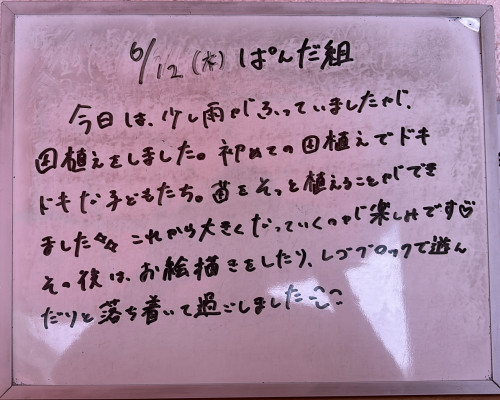 6/12（木）ぱんだ組
今日は、少し雨がふっていましたが、
田植えをしました。初めての田植えでドキ
ドキな子どもたち。苗をそっと植えることができ
ました☆☆ これから大きくなっていくのが楽しみです♡
その後は、お絵描きをしたり、レゴブロックで遊ん
だりと落ち着いて過ごしました